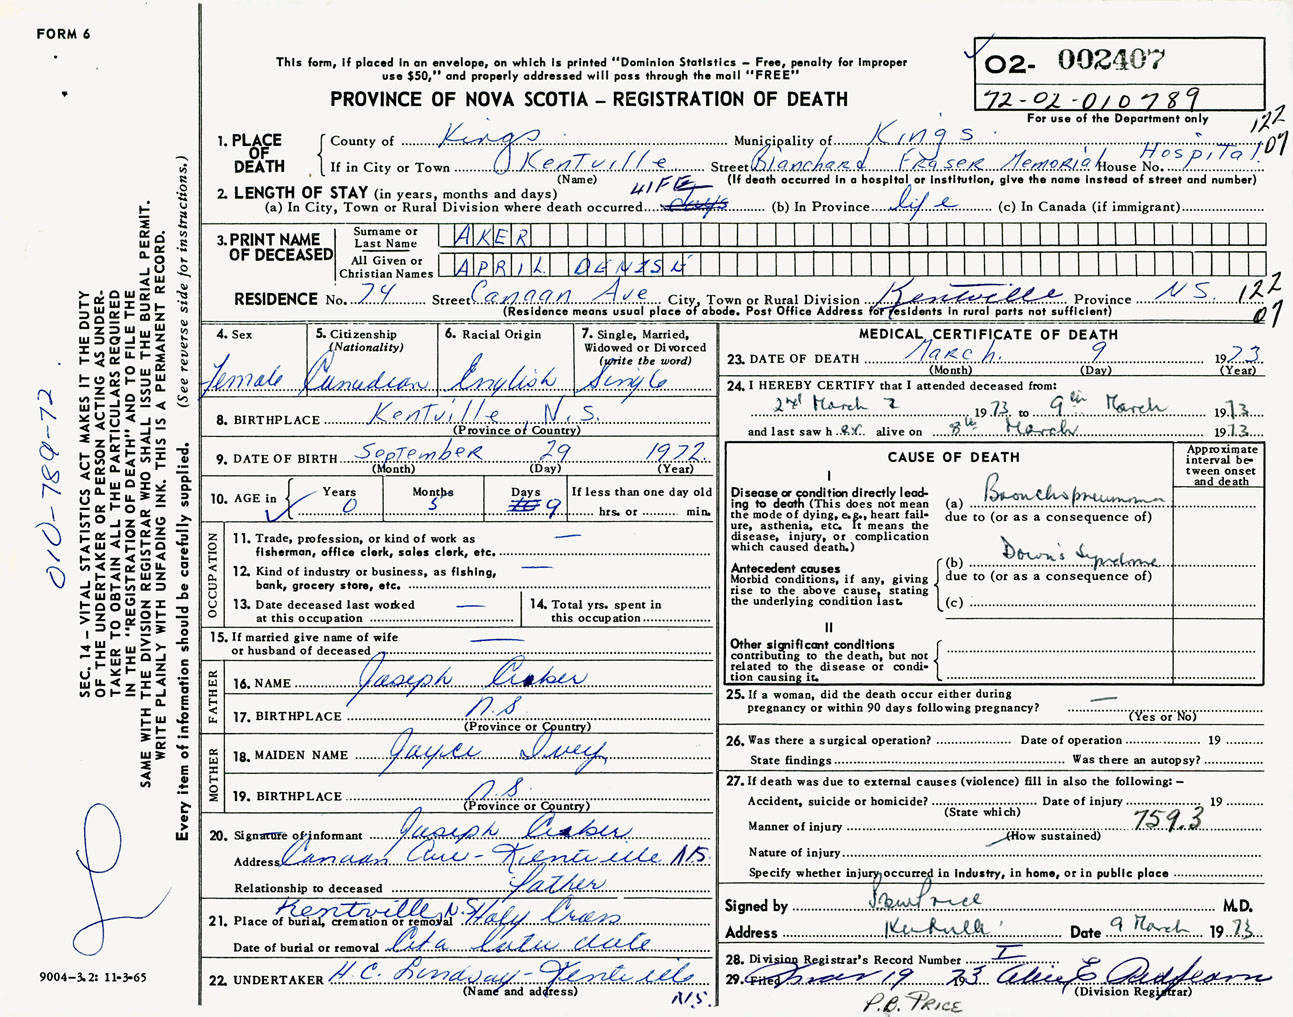 FORM 6
This form, if placed in an envelope, on which is printed "Dominion Statistics – Free, penalty for improper
use $50," and properly addressed will pass through the mail "FREE"
PROVINCE OF NOVA SCOTIA – REGISTRATION OF DEATH
02- 002407
72-02-010789
For use of the Department only
122
07
1. PLACE OF DEATH
County of Kings Municipality of Kings
If in City or Town Kentville Street Blanchard Fraser Memorial House No. Hospital
(Name) (If death occurred in a hospital or institution, give the name instead of street and number)
2. LENGTH OF STAY (in years, months and days) LIFE
(a) In City, Town or Rural Division where death occurred days (b) In Province life (c) In Canada (if immigrant)
3. PRINT NAME OF DECEASED
Surname or Last Name AKER
All Given or Christian Names APRIL DENISE
RESIDENCE No. 74 Street Canaan Ave City, Town or Rural Division Kentville Province N.S. 122
(Residence means usual place of abode. Post Office Address for residents in rural parts not sufficient) 07
4. Sex
Female
5. Citizenship (Nationality)
Canadian
6. Racial Origin
English
7. Single, Married, Widowed or Divorced (write the word)
Single
8. BIRTHPLACE Kentville N.S.
(Province of Country)
9. DATE OF BIRTH September 29 1972
(Month) (Day) (Year)
10. AGE in Years 0 Months 5 Days 9 If less than one day old
hrs. or min.
OCCUPATION
11. Trade, profession, or kind of work as
fisherman, office clerk, sales clerk, etc. —
12. Kind of industry or business, as fishing,
bank, grocery store, etc. —
13. Date deceased last worked
at this occupation —
14. Total yrs. spent in
this occupation
15. If married give name of wife
or husband of deceased —
FATHER
16. NAME Joseph Aker
17. BIRTHPLACE N.S.
(Province or Country)
MOTHER
18. MAIDEN NAME Joyce Ivey
19. BIRTHPLACE N.S.
(Province or Country)
20. Signature of informant Joseph Aker
Address Canaan Ave - Kentville N.S.
Relationship to deceased Father
Kentville N.S.
21. Place of burial, cremation or removal Holy Cross
Date of burial or removal At a later date
22. UNDERTAKER H.C. Lindsay - Kentville
(Name and address) N.S.
MEDICAL CERTIFICATE OF DEATH
23. DATE OF DEATH March 9 1973
(Month) (Day) (Year)
24. I HEREBY CERTIFY that I attended deceased from:
2nd March 1973 to 9th March 1973
and last saw her alive on 8th March 1973
CAUSE OF DEATH
Approximate interval between onset and death
I
Disease or condition directly lead-
ing to death (This does not mean
the mode of dying, e.g., heart fail-
ure, asthenia, etc. It means the
disease, injury, or complication
which caused death.)
(a) Bronchopneumonia
due to (or as a consequence of)
Antecedent causes
Morbid conditions, if any, giving
rise to the above cause, stating
the underlying condition last.
(b) Down's Syndrome
due to (or as a consequence of)
(c)
II
Other significant conditions
contributing to the death, but not
related to the disease or condi-
tion causing it.
25. If a woman, did the death occur either during
pregnancy or within 90 days following pregnancy? —
(Yes or No)
26. Was there a surgical operation? Date of operation 19
State findings Was there an autopsy?
27. If death was due to external causes (violence) fill in also the following: –
Accident, suicide or homicide? Date of injury 19
(State which)
Manner of injury 759.3
(How sustained)
Nature of injury
Specify whether injury occurred in industry, in home, or in public place
Signed by Price M.D.
Address Kentville Date 9 March 1973
28. Division Registrar's Record Number I
29. Filed Mar 19 1973
(Division Registrar)
P.B. PRICE
SEC. 14 – VITAL STATISTICS ACT MAKES IT THE DUTY
OF THE UNDERTAKER OR PERSON ACTING AS UNDER-
TAKER TO OBTAIN ALL THE PARTICULARS REQUIRED
IN THE "REGISTRATION OF DEATH" AND TO FILE THE
SAME WITH THE DIVISION REGISTRAR WHO SHALL ISSUE THE BURIAL PERMIT.
WRITE PLAINLY WITH UNFADING INK. THIS IS A PERMANENT RECORD.
Every item of information should be carefully supplied. (See reverse side for instructions.)
010-789-72
9004-3.2: 11-3-65